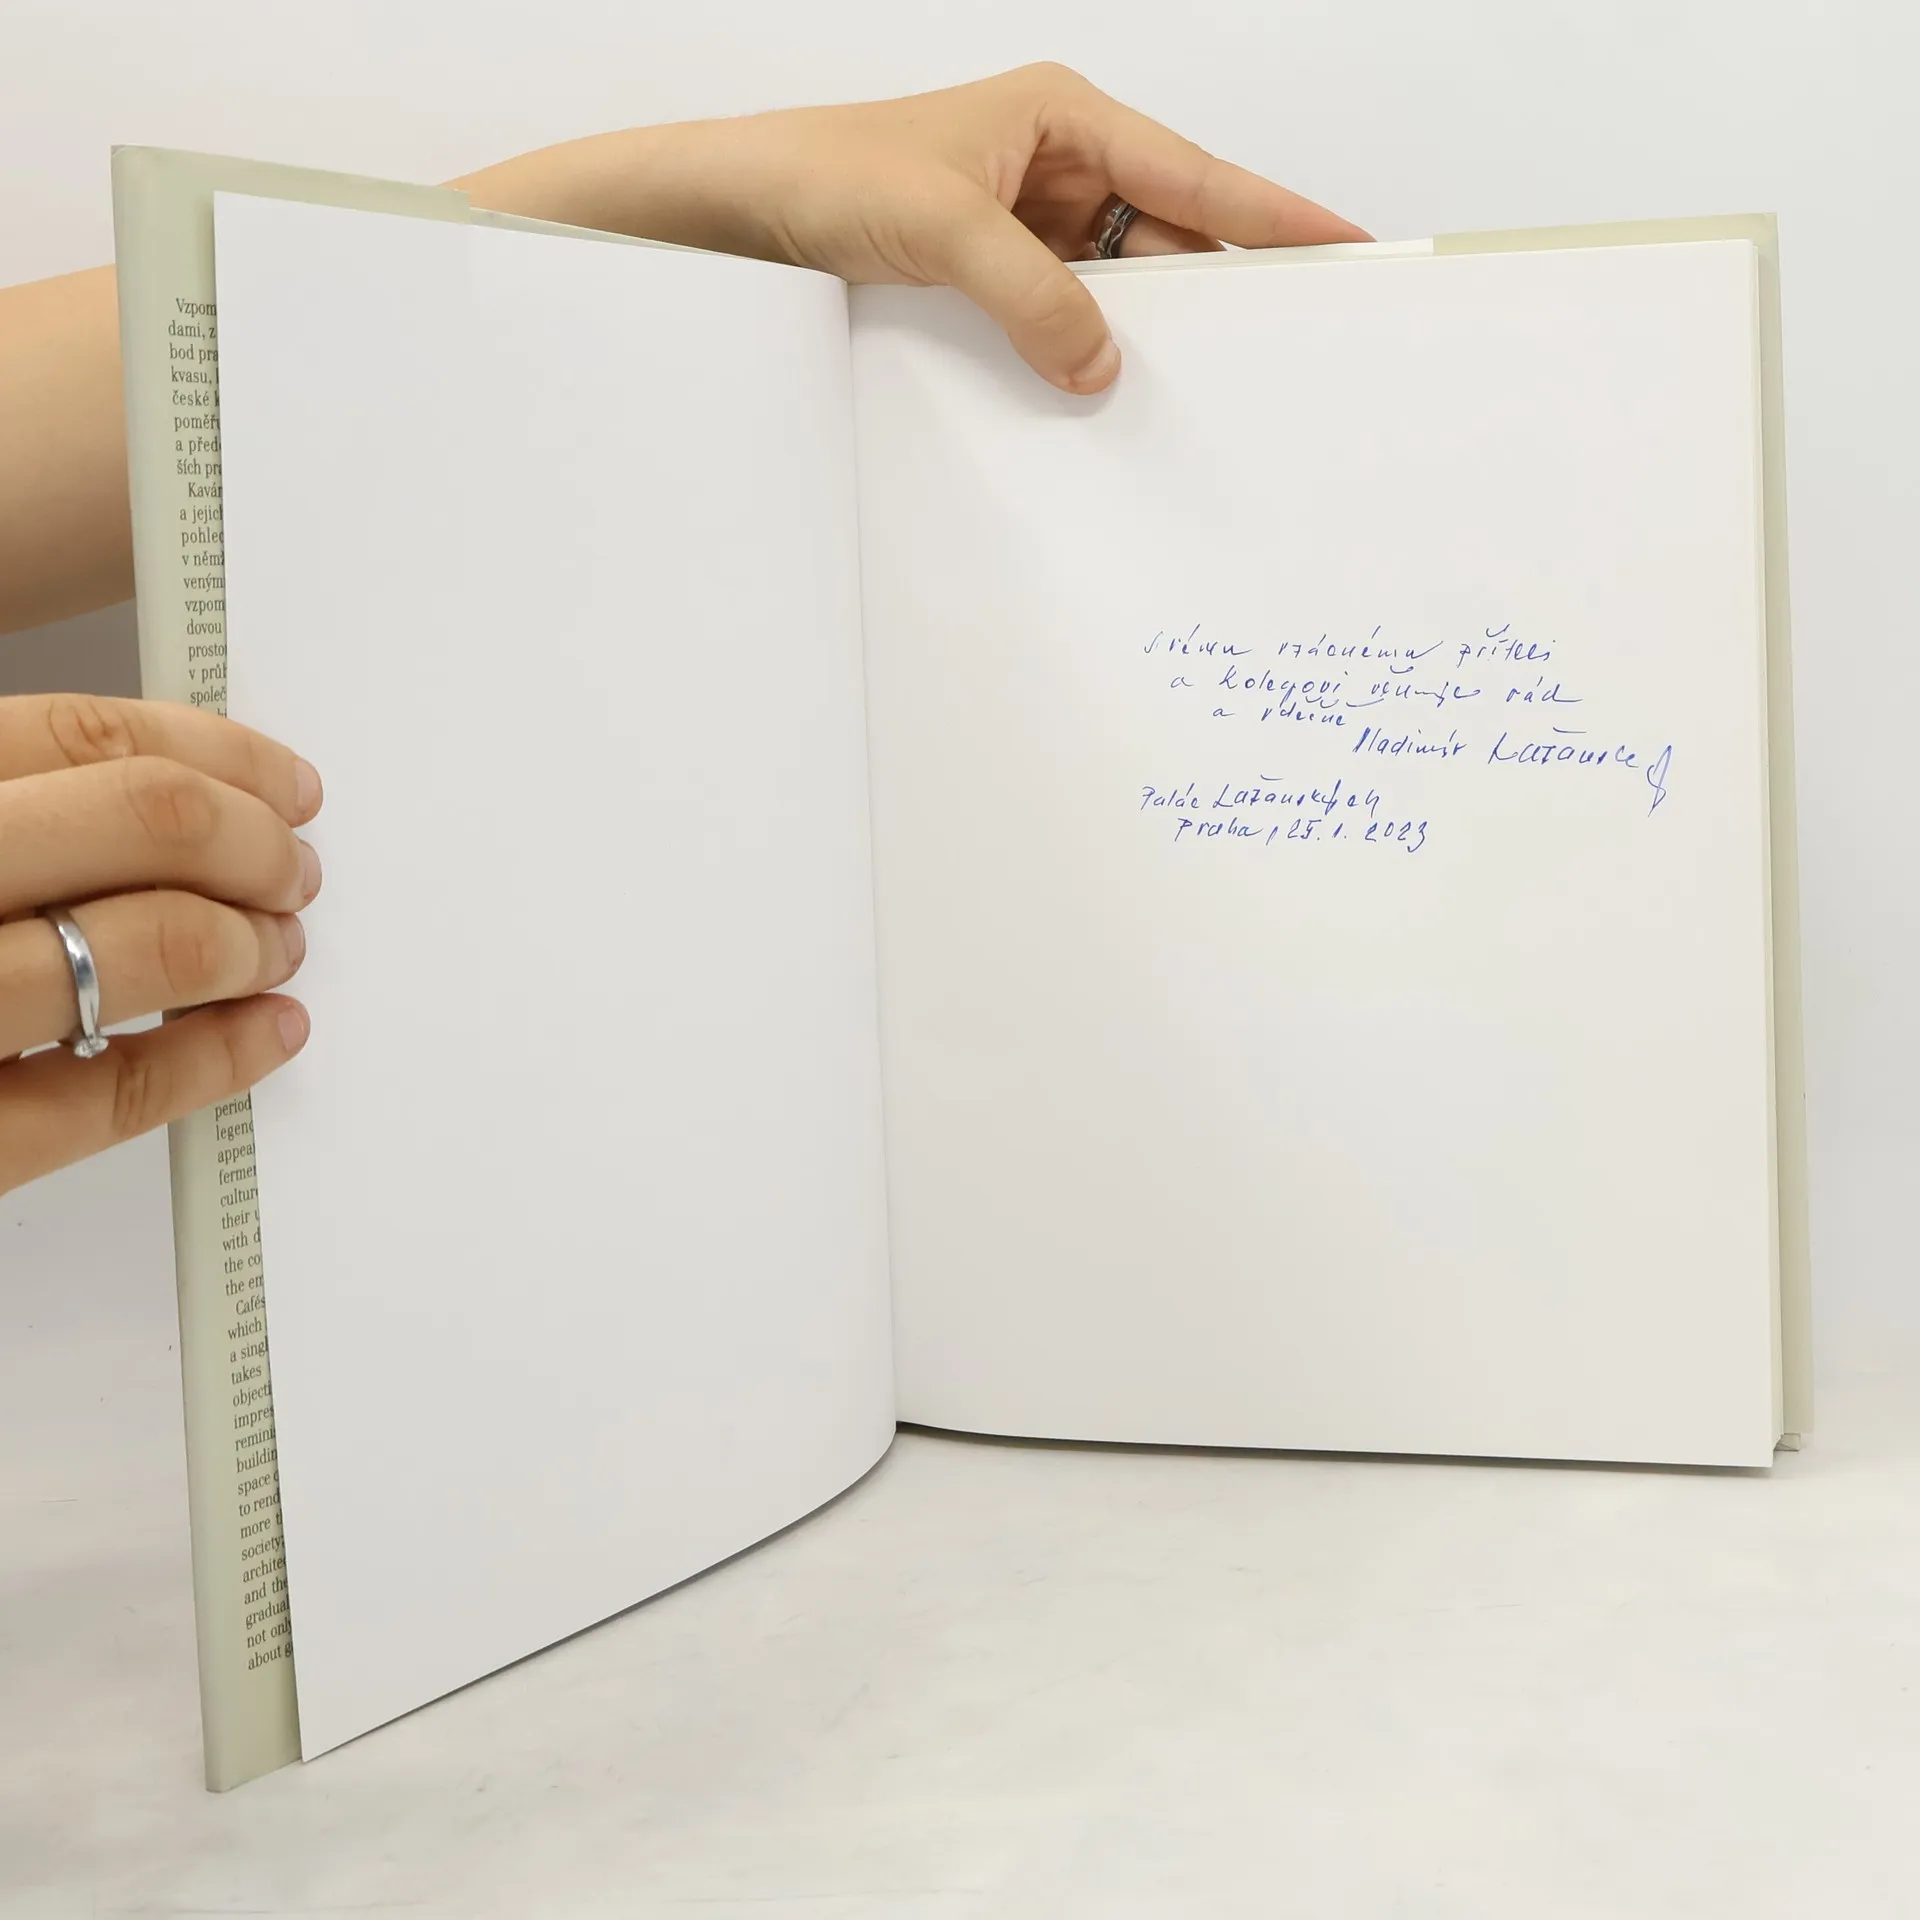 Vzpom
dami, z
bod pra
kvasu,
české k
poměř
a před
ších pr
Kavár
a jejich
pohled
v němž
veným
vzpom
dovou
prostor
v průb
společ
period
legend
appea
fermen
culture
their u
with d
the co
the em
Cafés
which
a singl
takes
objecti
impres
remini
buildin
space o
to rend
more t
society;
archite
and the
gradual
not only
about g
Svému vzácnému příteli
a kolegovi věnuje rád
a vděčně
Vladimír Lažansk
Palác Lažanských
Praha, 25. 1. 2023